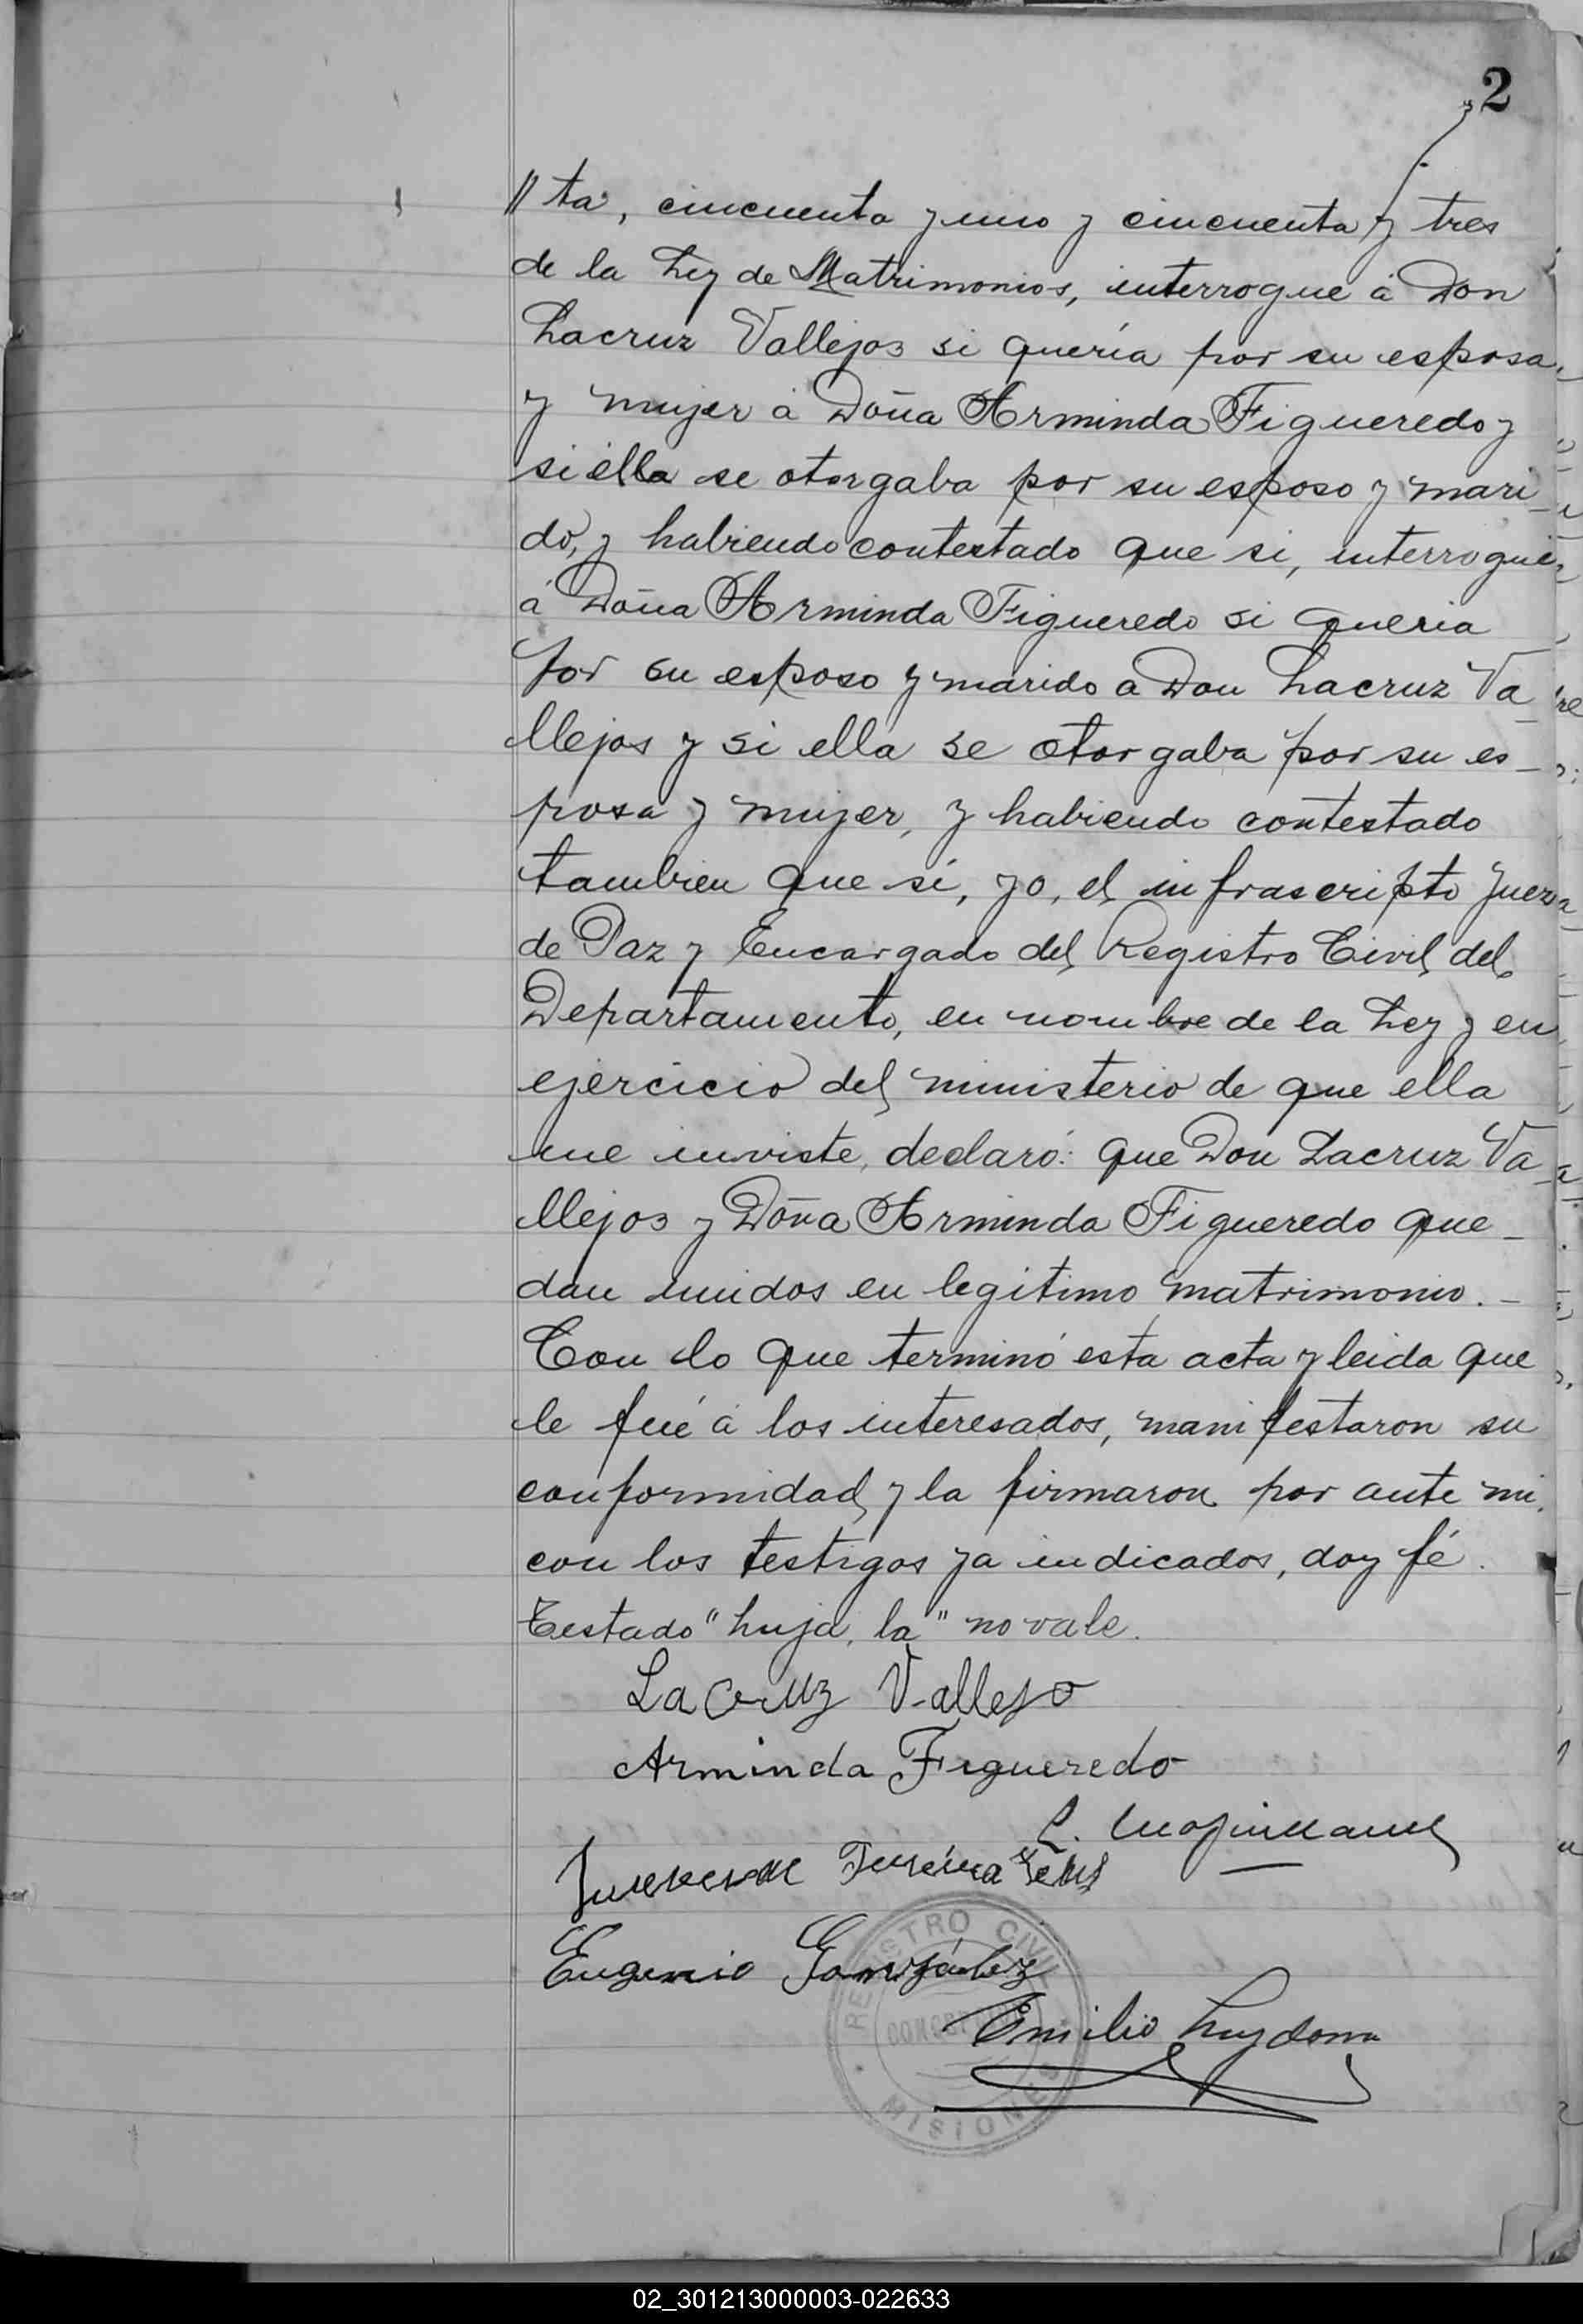 2
// ta, cincuenta y uno y cincuenta y tres
de la Ley de Matrimonios, interrogue á Don
Lacruz Vallejos si quería por su esposa
y mujer á Doña Arminda Figueredo y
si élla se otorgaba por su esposo y mari-
do, y habiendo contestado que si, interrogué
á Doña Arminda Figueredo si queria
por su esposo y marido a Don Lacruz Va-
llejos y si ella se otorgaba por su es-
posa y mujer, y habiendo contestado
tambien que si, yo, el infrascripto Juez
de Paz y Encargado del Registro Civil del
Departamento, en nombre de la Ley y en
ejercicio del ministerio de que ella
me inviste, declaró: que Don Lacruz Va-
llejos y Doña Arminda Figueredo que-
dan unidos en legitimo matrimonio.-
Con lo que terminó esta acta y leida que
le fué á los interesados, manifestaron su
conformidad y la firmaron por ante mi
con los testigos ya indicados, doy fé.
Testado "huja, la" no vale.
La Cruz Vallejo
Arminda Figueredo
L.
Eugenio González
Emilio
REGISTRO CIVIL
CONCEPCION
MISIONES
02_301213000003-022633